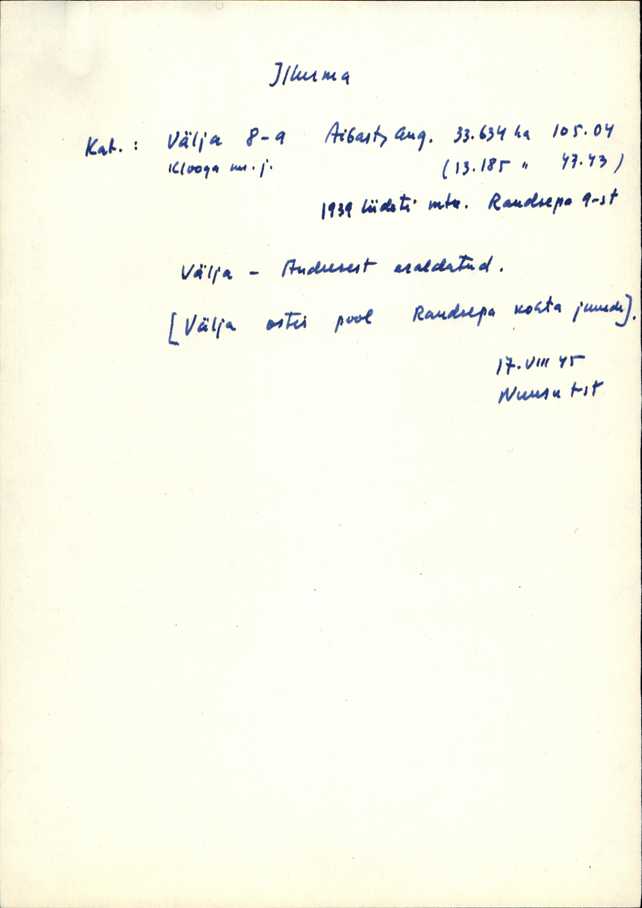 Ilkurma
Kat.: Välja 8-a Aibast, Aug. 33.634 ha 105.04
Klooga m. j. (13.185 " 47.43)
1939 liideti mtn. Randsepa 9-st
Välja - Andresest eraldatud.
[Välja ostis pool Randsepa kohta juurde].
17.VIII 45
t-st